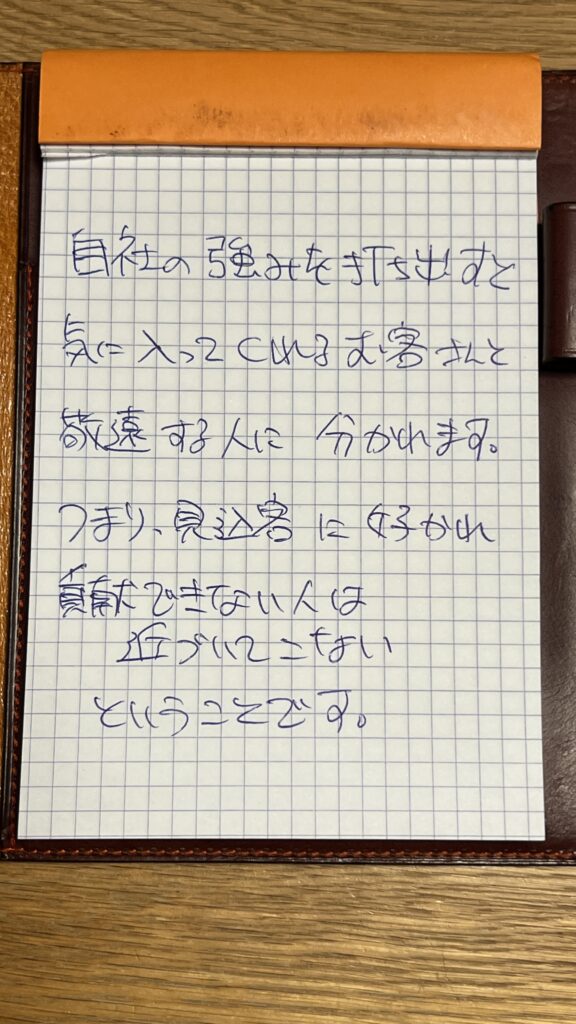 自社の強みを打ち出すと
気に入ってくれるお客さんと
敬遠する人に分かれます。
つまり、見込客に好かれ
貢献できない人は
近づいてこない
ということです。